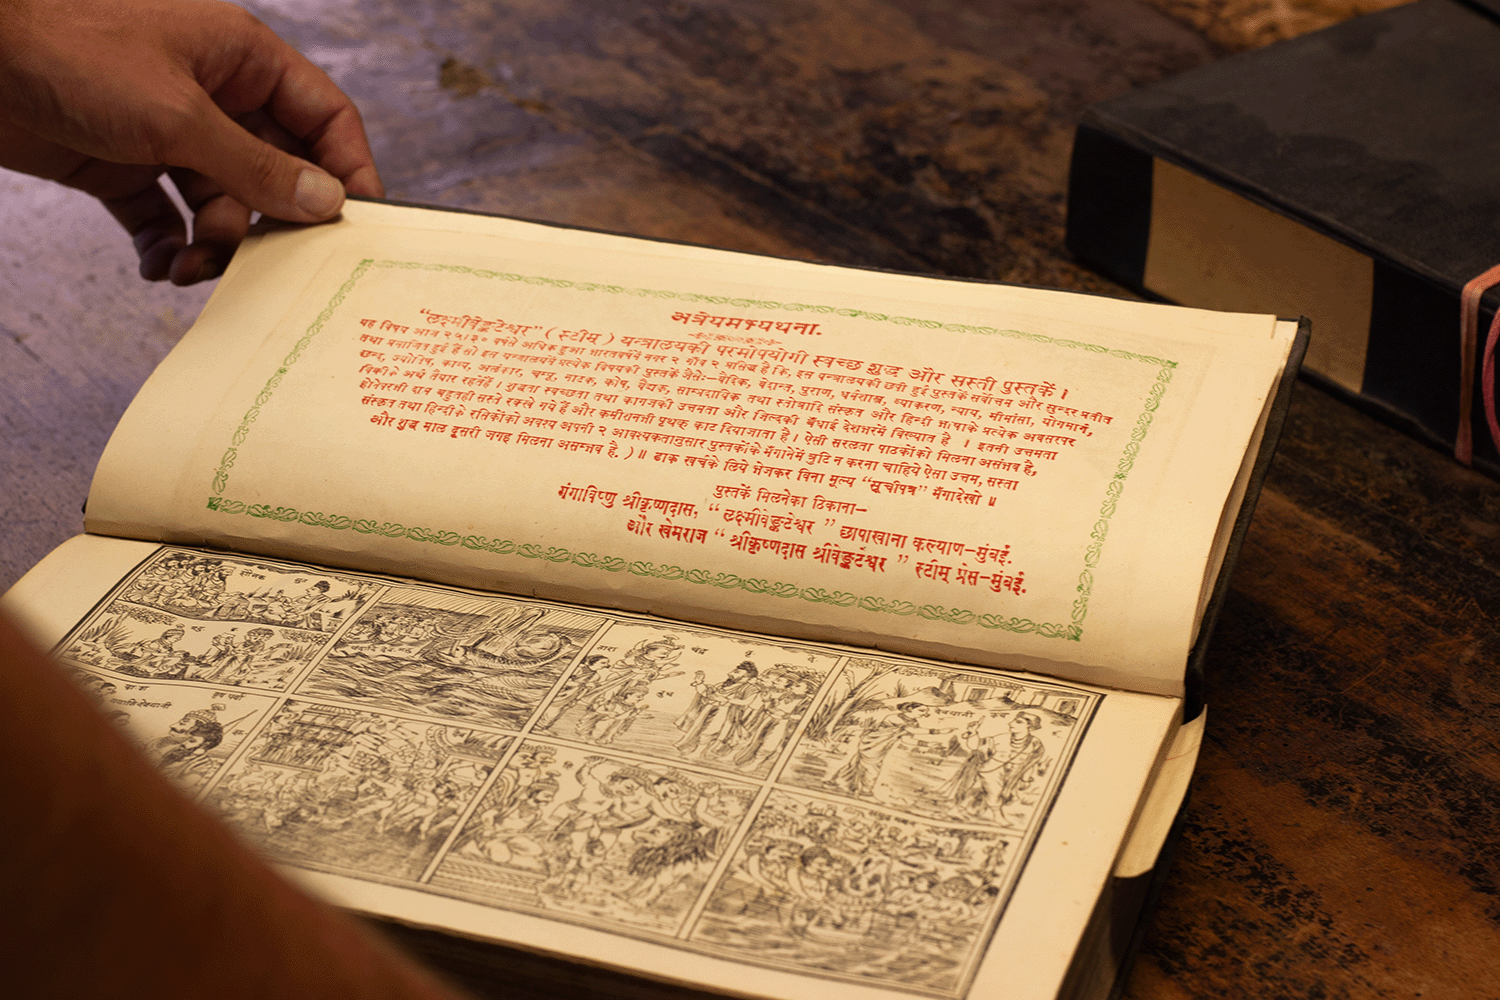 अत्रेयमभ्यर्थना.
“लक्ष्मीवेङ्कटेश्वर” ( स्टीम् ) यन्त्रालयकी परमोपयोगी स्वच्छ शुद्ध और सस्ती पुस्तकें ।
यह विषय आज २५।३० वर्षसे अधिक हुआ भारतवर्षमें नगर २ गाँव २ प्रसिद्ध है कि, इस यन्त्रालयकी छपी हुई पुस्तकें सर्वोत्तम और सुन्दर प्रतीत
तथा प्रमाणित हुई हैं सो इस यन्त्रालयमें प्रत्येक विषयकी पुस्तकें जैसे:—वैदिक, वेदान्त, पुराण, धर्मशास्त्र, व्याकरण, न्याय, मीमांसा, योगमार्ग,
छन्द, ज्योतिष, काव्य, अलंकार, चम्पू, नाटक, कोष, वैद्यक, साम्प्रदायिक तथा स्तोत्रादि संस्कृत और हिन्दी भाषाके प्रत्येक अवसरपर
विक्रीके अर्थ तैयार रहतेहैं । शुद्धता स्वच्छता तथा कागजकी उत्तमता और जिल्दकी बँधाई देशभरमें विख्यात है । इतनी उत्तमता
होनेपरभी दाम बहुतही सस्ते रक्खे गये हैं और कमीशनभी पृथक् काट दियाजाता है । ऐसी सरलता पाठकोंको मिलना असंभव है,
संस्कृत तथा हिन्दीके रसिकोंको अवश्य अपनी २ आवश्यकतानुसार पुस्तकोंके मँगानेमें त्रुटि न करना चाहिये ऐसा उत्तम, सस्ता
और शुद्ध माल दूसरी जगह मिलना असम्भव है. ) ॥ डाक खर्चके लिये भेजकर बिना मूल्य “सूचीपत्र” मँगादेखो ॥
पुस्तकें मिलनेका ठिकाना—
गंगाविष्णु श्रीकृष्णदास, “ लक्ष्मीवेङ्कटेश्वर ” छापाखाना कल्याण—मुंबई.
और खेमराज “ श्रीकृष्णदास श्रीवेङ्कटेश्वर ” स्टीम् प्रेस—मुंबई.
तारा चंद्र
बुध
देवयानी कच